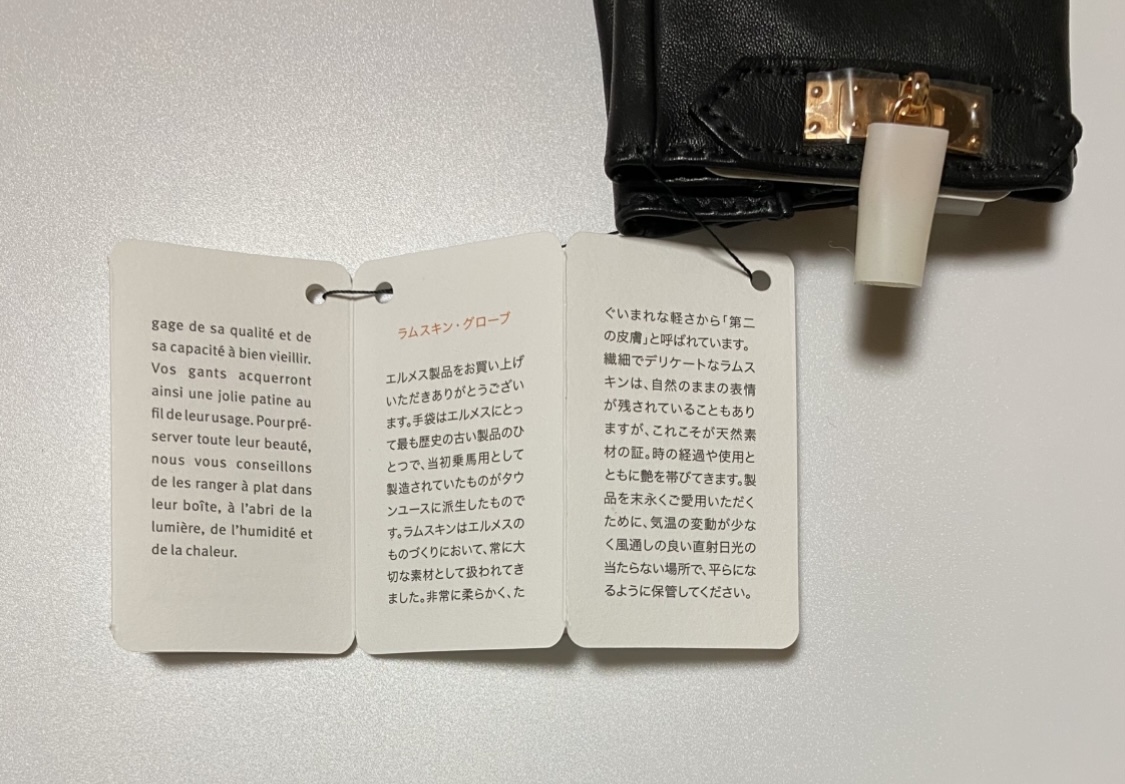 gage de sa qualité et de
sa capacité à bien vieillir.
Vos gants acquerront
ainsi une jolie patine au
fil de leur usage. Pour pré-
server toute leur beauté,
nous vous conseillons
de les ranger à plat dans
leur boîte, à l'abri de la
lumière, de l'humidité et
de la chaleur.
ラムスキン・グローブ
エルメス製品をお買い上げ
いただきありがとうござい
ます。手袋はエルメスにとっ
て最も歴史の古い製品のひ
とつで、当初乗馬用として
製造されていたものがタウ
ンユースに派生したもので
す。ラムスキンはエルメスの
ものづくりにおいて、常に大
切な素材として扱われてき
ました。非常に柔らかく、た
ぐいまれな軽さから「第二
の皮膚」と呼ばれています。
繊細でデリケートなラムス
キンは、自然のままの表情
が残されていることもあり
ますが、これこそが天然素
材の証。時の経過や使用と
ともに艶を帯びてきます。製
品を末永くご愛用いただく
ために、気温の変動が少な
く風通しの良い直射日光の
当たらない場所で、平らにな
るように保管してください。